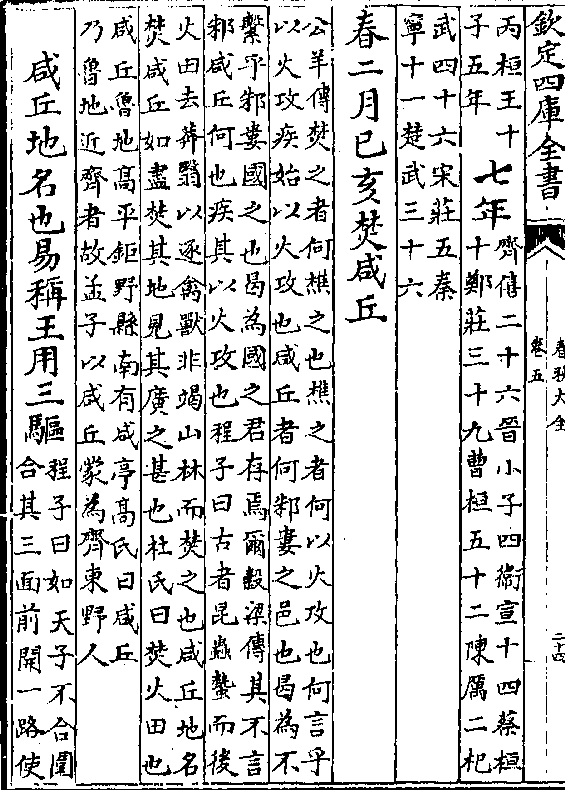 欽定四庫全書
春秋大全
卷五
二十四
丙桓王十
子五年
七年
齊僖二十六晉小子四衞宣十四蔡桓
十鄭莊三十九曹桓五十二陳厲二杞
武四十六宋莊五秦
寧十一楚武三十六
春二月已亥焚咸丘
公羊傳焚之者何樵之也樵之者何以火攻也何言乎
以火攻疾始以火攻也咸丘者何邾婁之邑也曷為不
繫乎邾婁國之也曷為國之君存焉爾穀梁傳其不言
邾咸丘何也疾其以火攻也程子曰古者昆蟲蟄而後
火田去莽翳以逐禽獸非竭山林而焚之也咸丘地名
焚咸丘如盡焚其地見其廣之甚也杜氏曰焚火田也
咸丘魯地高平鉅野縣南有咸亭高氏曰咸丘
乃魯地近齊者故孟子以咸丘蒙為齊東野人
咸丘地名也易稱王用三驅
程子曰如天子不合圍
合其三面前開一路使